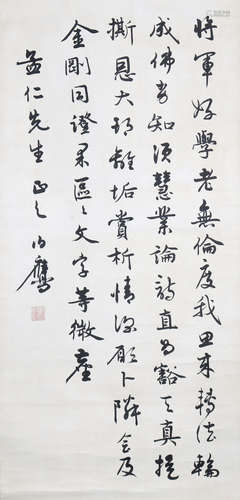 將軍好學老無倫度我迴來轉法輪
成佛當知須慧業論詩直為豁天真提
撕恩大那離垢賞析情深願卜隣會及
金剛同證果區區文字等微塵
孟仁先生正之 伯鷹